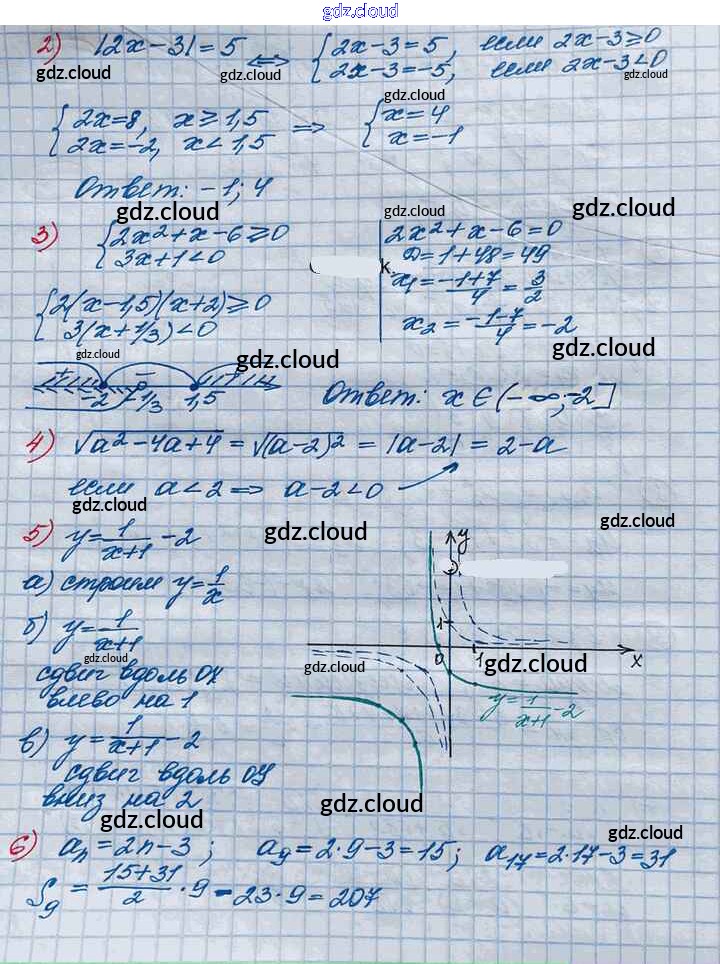 gdz.cloud
2) |2x-3|=5 ⟺ { 2x-3=5, если 2x-3≥0
2x-3=-5, если 2x-3<0
gdz.cloud gdz.cloud gdz.cloud
gdz.cloud
{ 2x=8, x≥1,5 ⟹ { x=4
2x=-2, x<1,5 x=-1
Ответ: -1; 4
gdz.cloud gdz.cloud gdz.cloud
3) { 2x²+x-6≥0
3x+1<0
2x²+x-6=0
D=1+48=49
k.
x₁=(-1+7)/4=3/2
x₂=(-1-7)/4=-2
{ 2(x-1,5)(x+2)≥0
3(x+1/3)<0
gdz.cloud gdz.cloud gdz.cloud
+ - +
-2 -1/3 1,5
Ответ: x∈(-∞;-2]
4) √(a²-4a+4)=√((a-2)²)=|a-2|=2-a
если a<2 ⟹ a-2<0
gdz.cloud gdz.cloud gdz.cloud
5) y=1/(x+1)-2
а) строим y=1/x
б) y=1/(x+1)
gdz.cloud
сдвиг вдоль OX
влево на 1
в) y=1/(x+1)-2
сдвиг вдоль OY
вниз на 2
y
1
0 1 x
gdz.cloud gdz.cloud
y=1/(x+1)-2
gdz.cloud gdz.cloud gdz.cloud
6) aₙ=2n-3; a₉=2·9-3=15; a₁₇=2·17-3=31
S₉=(15+31)/2·9=23·9=207